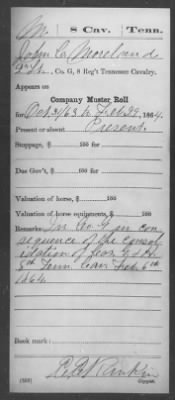 M. 8 Cav. Tenn.
John C. Moreland
Co. G, 8 Reg't Tennessee Cavalry.
Appears on
Company Muster Roll
for Oct 31/63 to Feb 29, 1864.
Present or absent Present
Stoppage, $ 100 for
Due Gov't, $ 100 for
Valuation of horse, $ 100
Valuation of horse equipments, $ 100
Remarks: In Co. G in con
sequence of the consol
idation of
8th Tenn Cav Feb 6th
1864
Book mark:
R. R. Rankin
(358) Copyist.